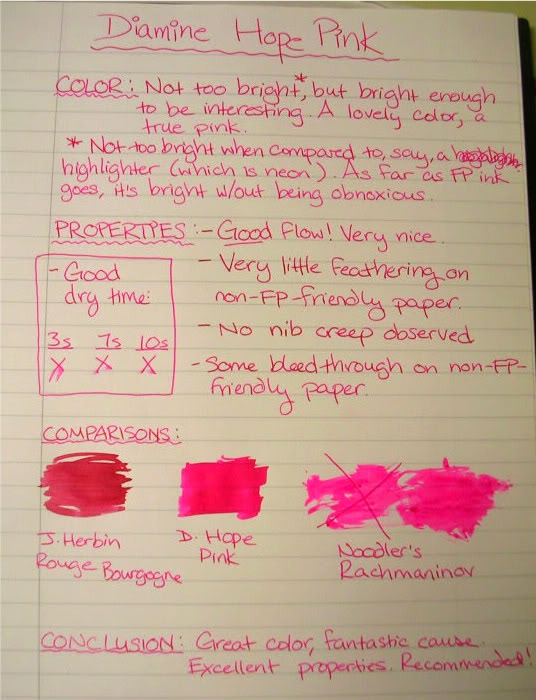 Diamine Hope Pink
COLOR: Not too bright*, but bright enough
to be interesting. A lovely color, a
true pink.
* Not too bright when compared to, say, a
highlighter (which is neon). As far as FP ink
goes, it's bright w/out being obnoxious.
PROPERTIES: - Good flow! Very nice.
- Very little feathering on
non-FP-friendly paper.
- No nib creep observed
- Some bleedthrough on non-FP-
friendly paper.
- Good
dry time:
3s 7s 10s
X X X
COMPARISONS:
J. Herbin
Rouge Bourgogne
D. Hope
Pink
Noodler's
Rachmaninov
CONCLUSION: Great color, fantastic cause.
Excellent properties. Recommended!